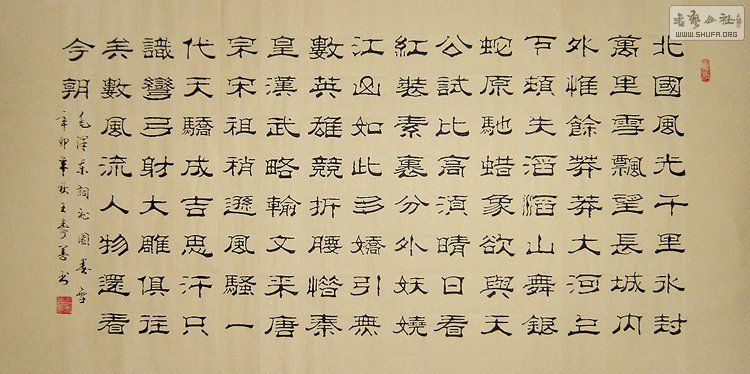 北國風光千里冰封
萬里雪飄望長城內
外惟餘莽莽大河上
下頓失滔滔山舞銀
蛇原馳蜡象欲與天
公試比高須晴日看
紅裝素裹分外妖嬈
江山如此多嬌引無
數英雄競折腰惜秦
皇漢武略輸文采唐
宗宋祖稍遜風騷一
代天驕成吉思汗只
識彎弓射大雕俱往
矣數風流人物還看
今朝
毛澤東詞沁園春雪
辛卯年秋王壽善書
WWW.SHUFA.ORG